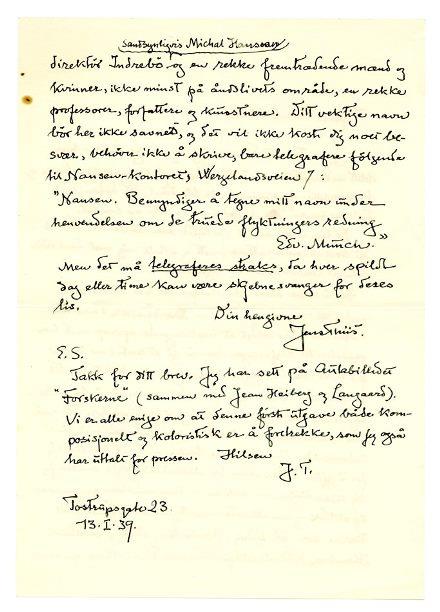 Sandsynligvis Michal Hansson
direktör Indrebö og en rekke fremtrædende mænd og
kvinner, ikke minst på åndslivets område, en rekke
professorer, forfattere og kunstnere. Ditt vektige navn
bör her ikke savnes, og det vil ikke koste dig noet be-
svær, behöver ikke å skrive, bare telegrafere fölgende
til Nansen-kontoret, Wergelandsveien 7:
"Nansen. Bemyndiger å tegne mitt navn under
henvendelsen om de truede flyktningers redning
Edv. Munch."
Men det må telegraferes straks, da hver spildt
dag eller time kan være skjebnesvanger for deres
liv.
Din hengivne
Jens Thiis.
E. S.
Takk for ditt brev. Jeg har sett på Aulabilledet
"Forskerne" (sammen med Jean Heiberg og Langaard).
Vi er alle enige om at denne förste utgave både kom-
posisjonelt og koloristisk er å foretrekke, som jeg også
har uttalt for pressen. Hilsen
J. T.
Tostrupsgate 23.
13. I. 39.